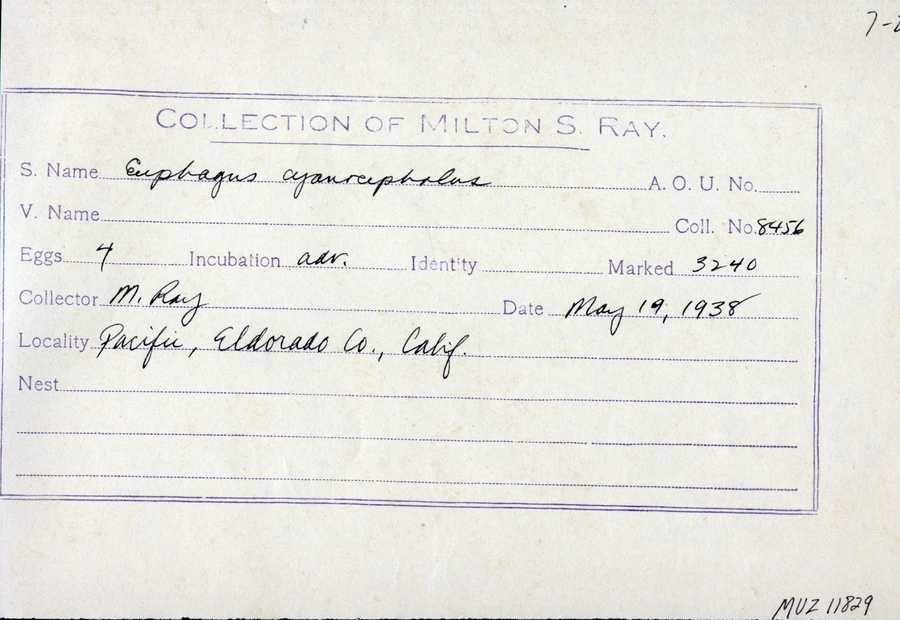 COLLECTION OF MILTON S. RAY.
S. Name Euphagus cyanocephalus A. O. U. No.
V. Name Coll. No. 8456
Eggs 4 Incubation adv. Identity Marked 3240
Collector M. Ray Date May 19, 1938
Locality Pacific, Eldorado Co., Calif.
Nest
MVZ 11829